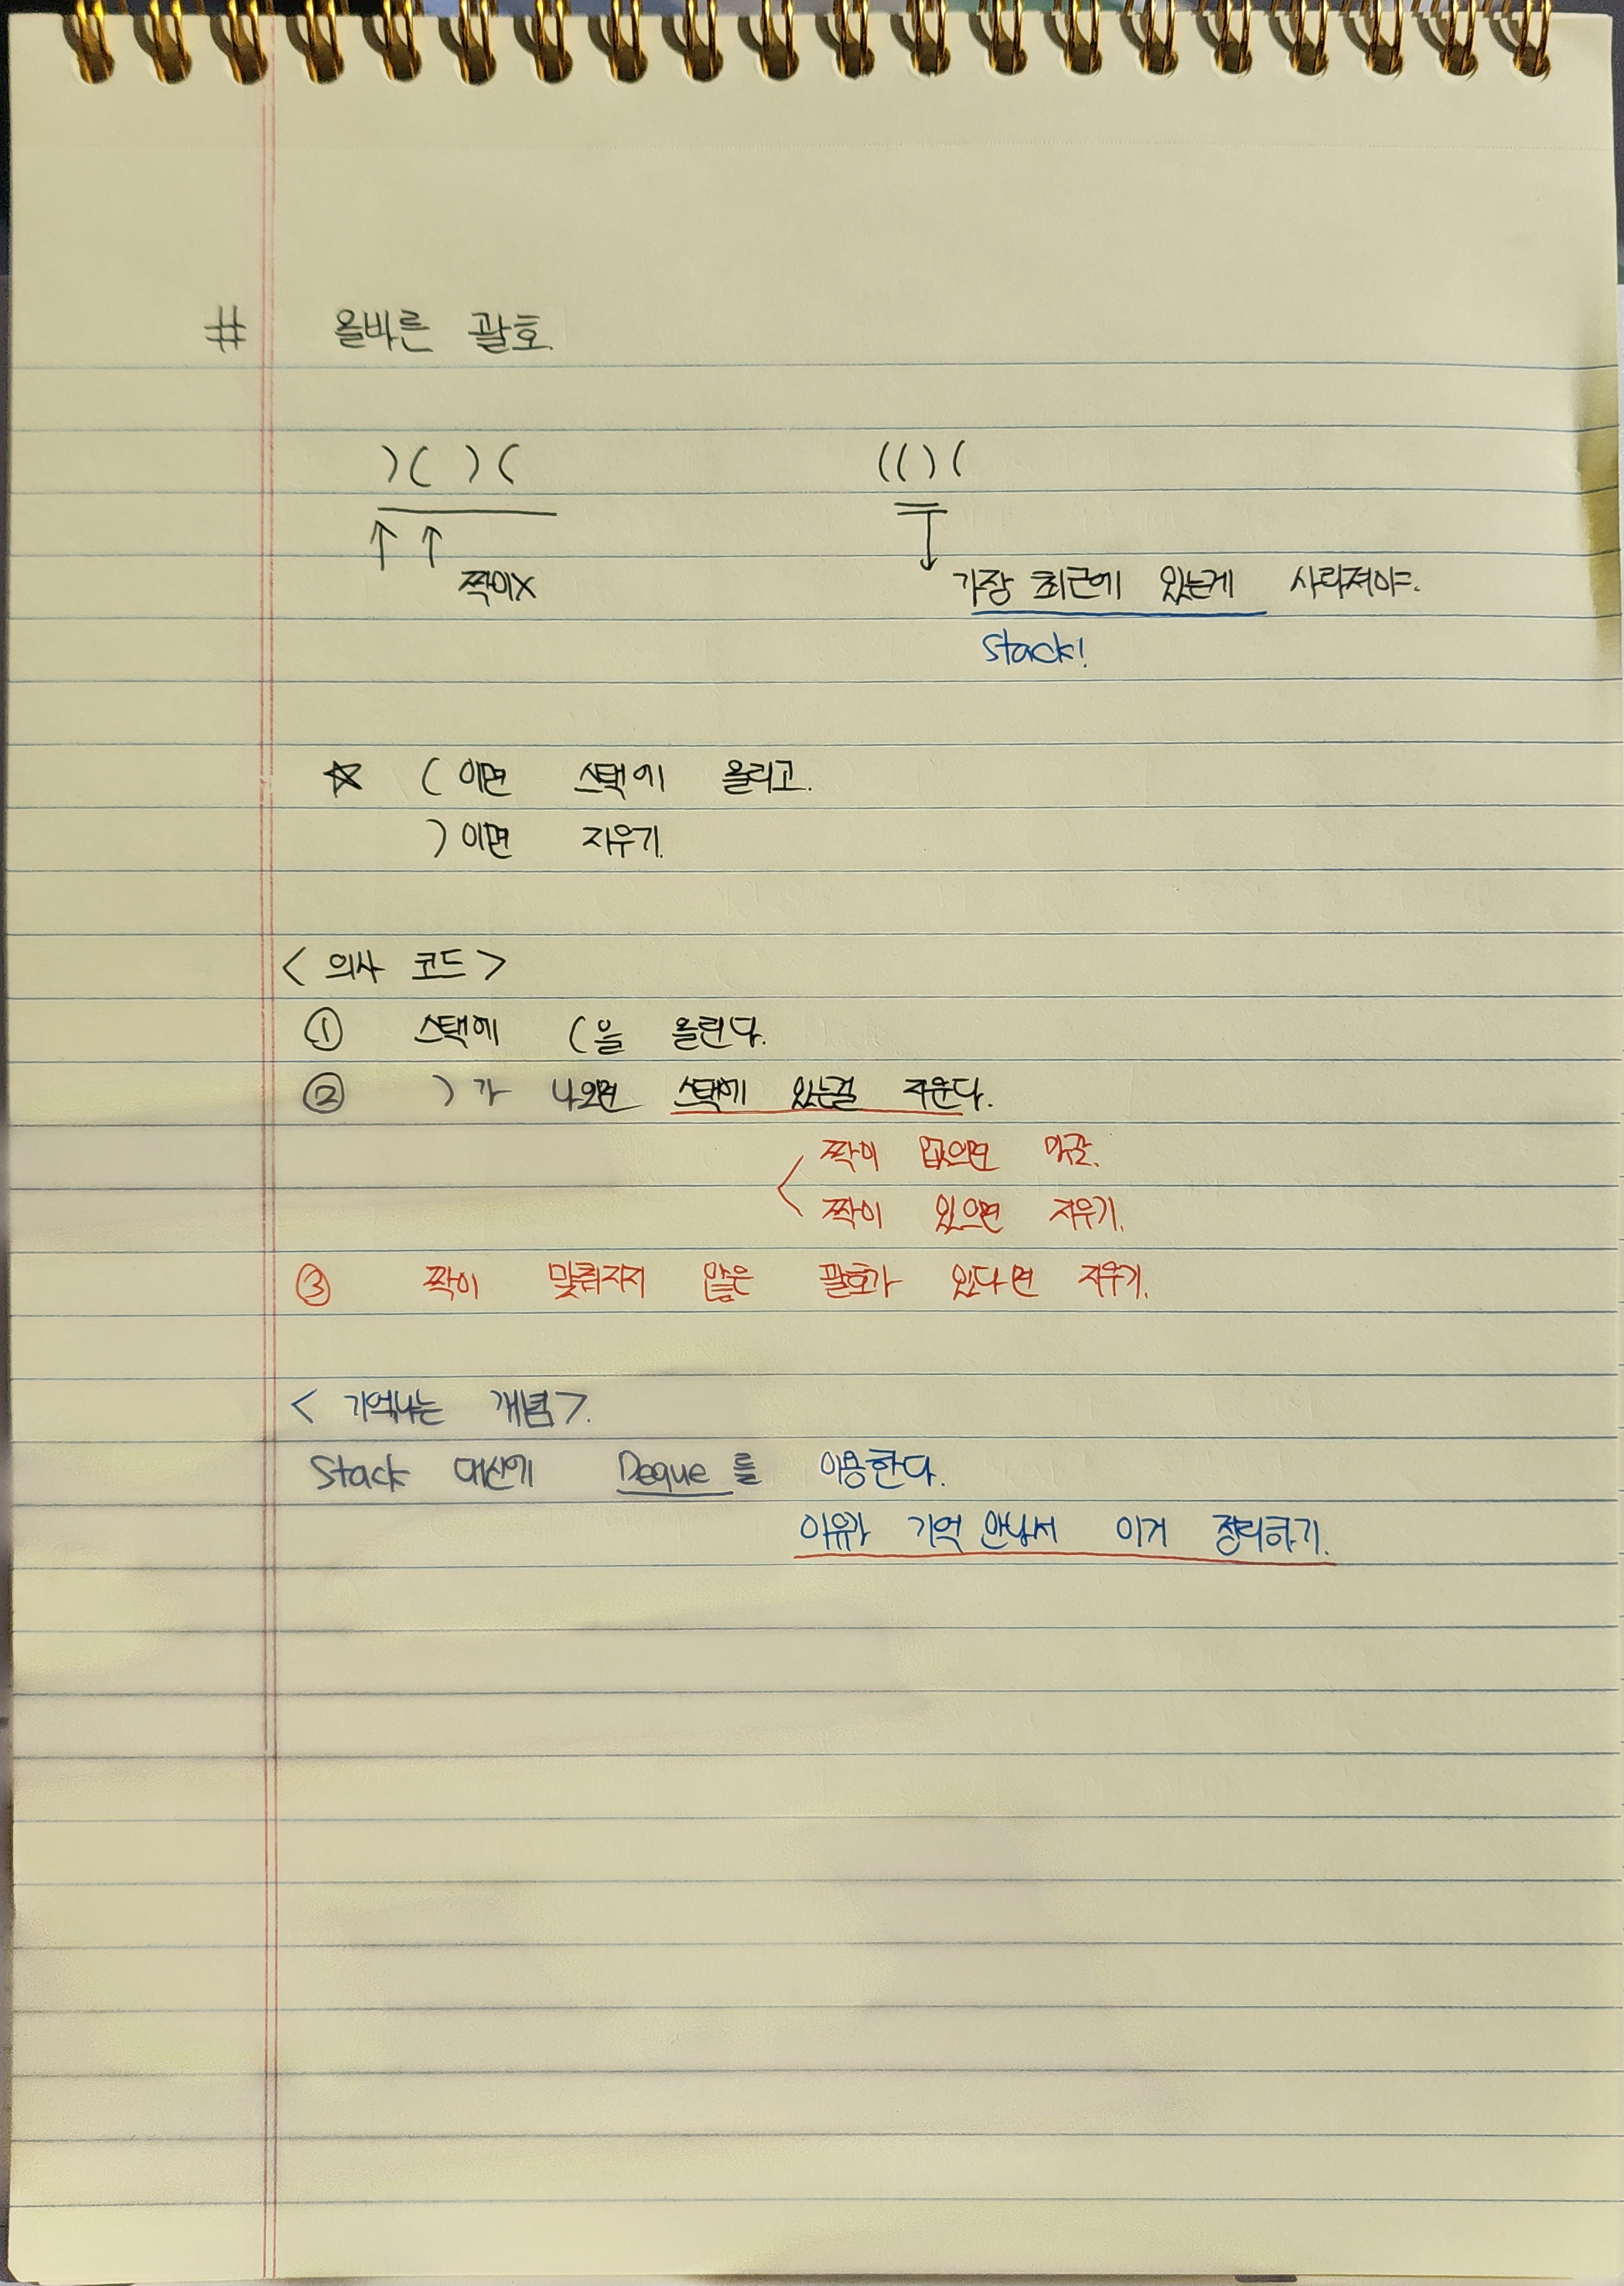 # 올바른 괄호.
)( )(
(( ) (
짝이X
가장 최근에 있는게 사라져야=.
Stack!
☆ ( 이면 스택에 올리고.
) 이면 지우기.
< 의사 코드 >
① 스택에 (을 올린다.
② )가 나오면 스택에 있는걸 지운다.
짝이 없으면
짝이 있으면 지우기.
③ 짝이 맞춰지지 않은 괄호가 있다면 지우기.
< 기억나는 개념 >.
Stack 대신에 Deque를 이용한다.
이유가 기억 안나서 이거 정리하기.